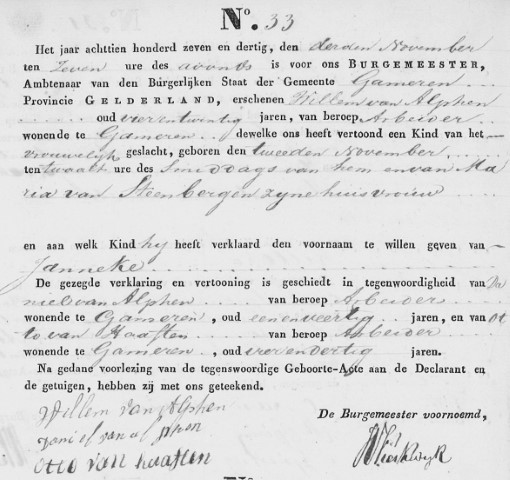 No. 33
Het jaar achttien honderd zeven en dertig, den derden November
ten zeven ure des avonds is voor ons BURGEMEESTER,
Ambtenaar van den Burgerlijken Staat der Gemeente Gameren
Provincie GELDERLAND, erschenen Willem van Alphen
oud vierentwintig jaren, van beroep Arbeider
wonende te Gameren dewelke ons heeft vertoond een Kind van het
vrouwelyk geslacht, geboren den tweeden November
ten twaalf ure des Smiddags van hem en van Ma
ria van Steenbergen zyne huisvrouw
en aan welk Kind hy heeft verklaard den voornaam te willen geven van
Janneke
De gezegde verklaring en vertooning is geschiedt in tegenwoordigheid van Da
niel van Alphen van beroep Arbeider
wonende te Gameren, oud eenenveertig jaren, en van Ot
to van Haaften van beroep Arbeider
wonende te Gameren, oud vierendertig jaren.
Na gedane voorlezing van de tegenswoordige Geboorte-Acte aan de Declarant en
de getuigen, hebben zij met ons geteekend.
Willem van Alphen
Daniel van alphen
otto van haaften
De Burgemeester voornoemd,